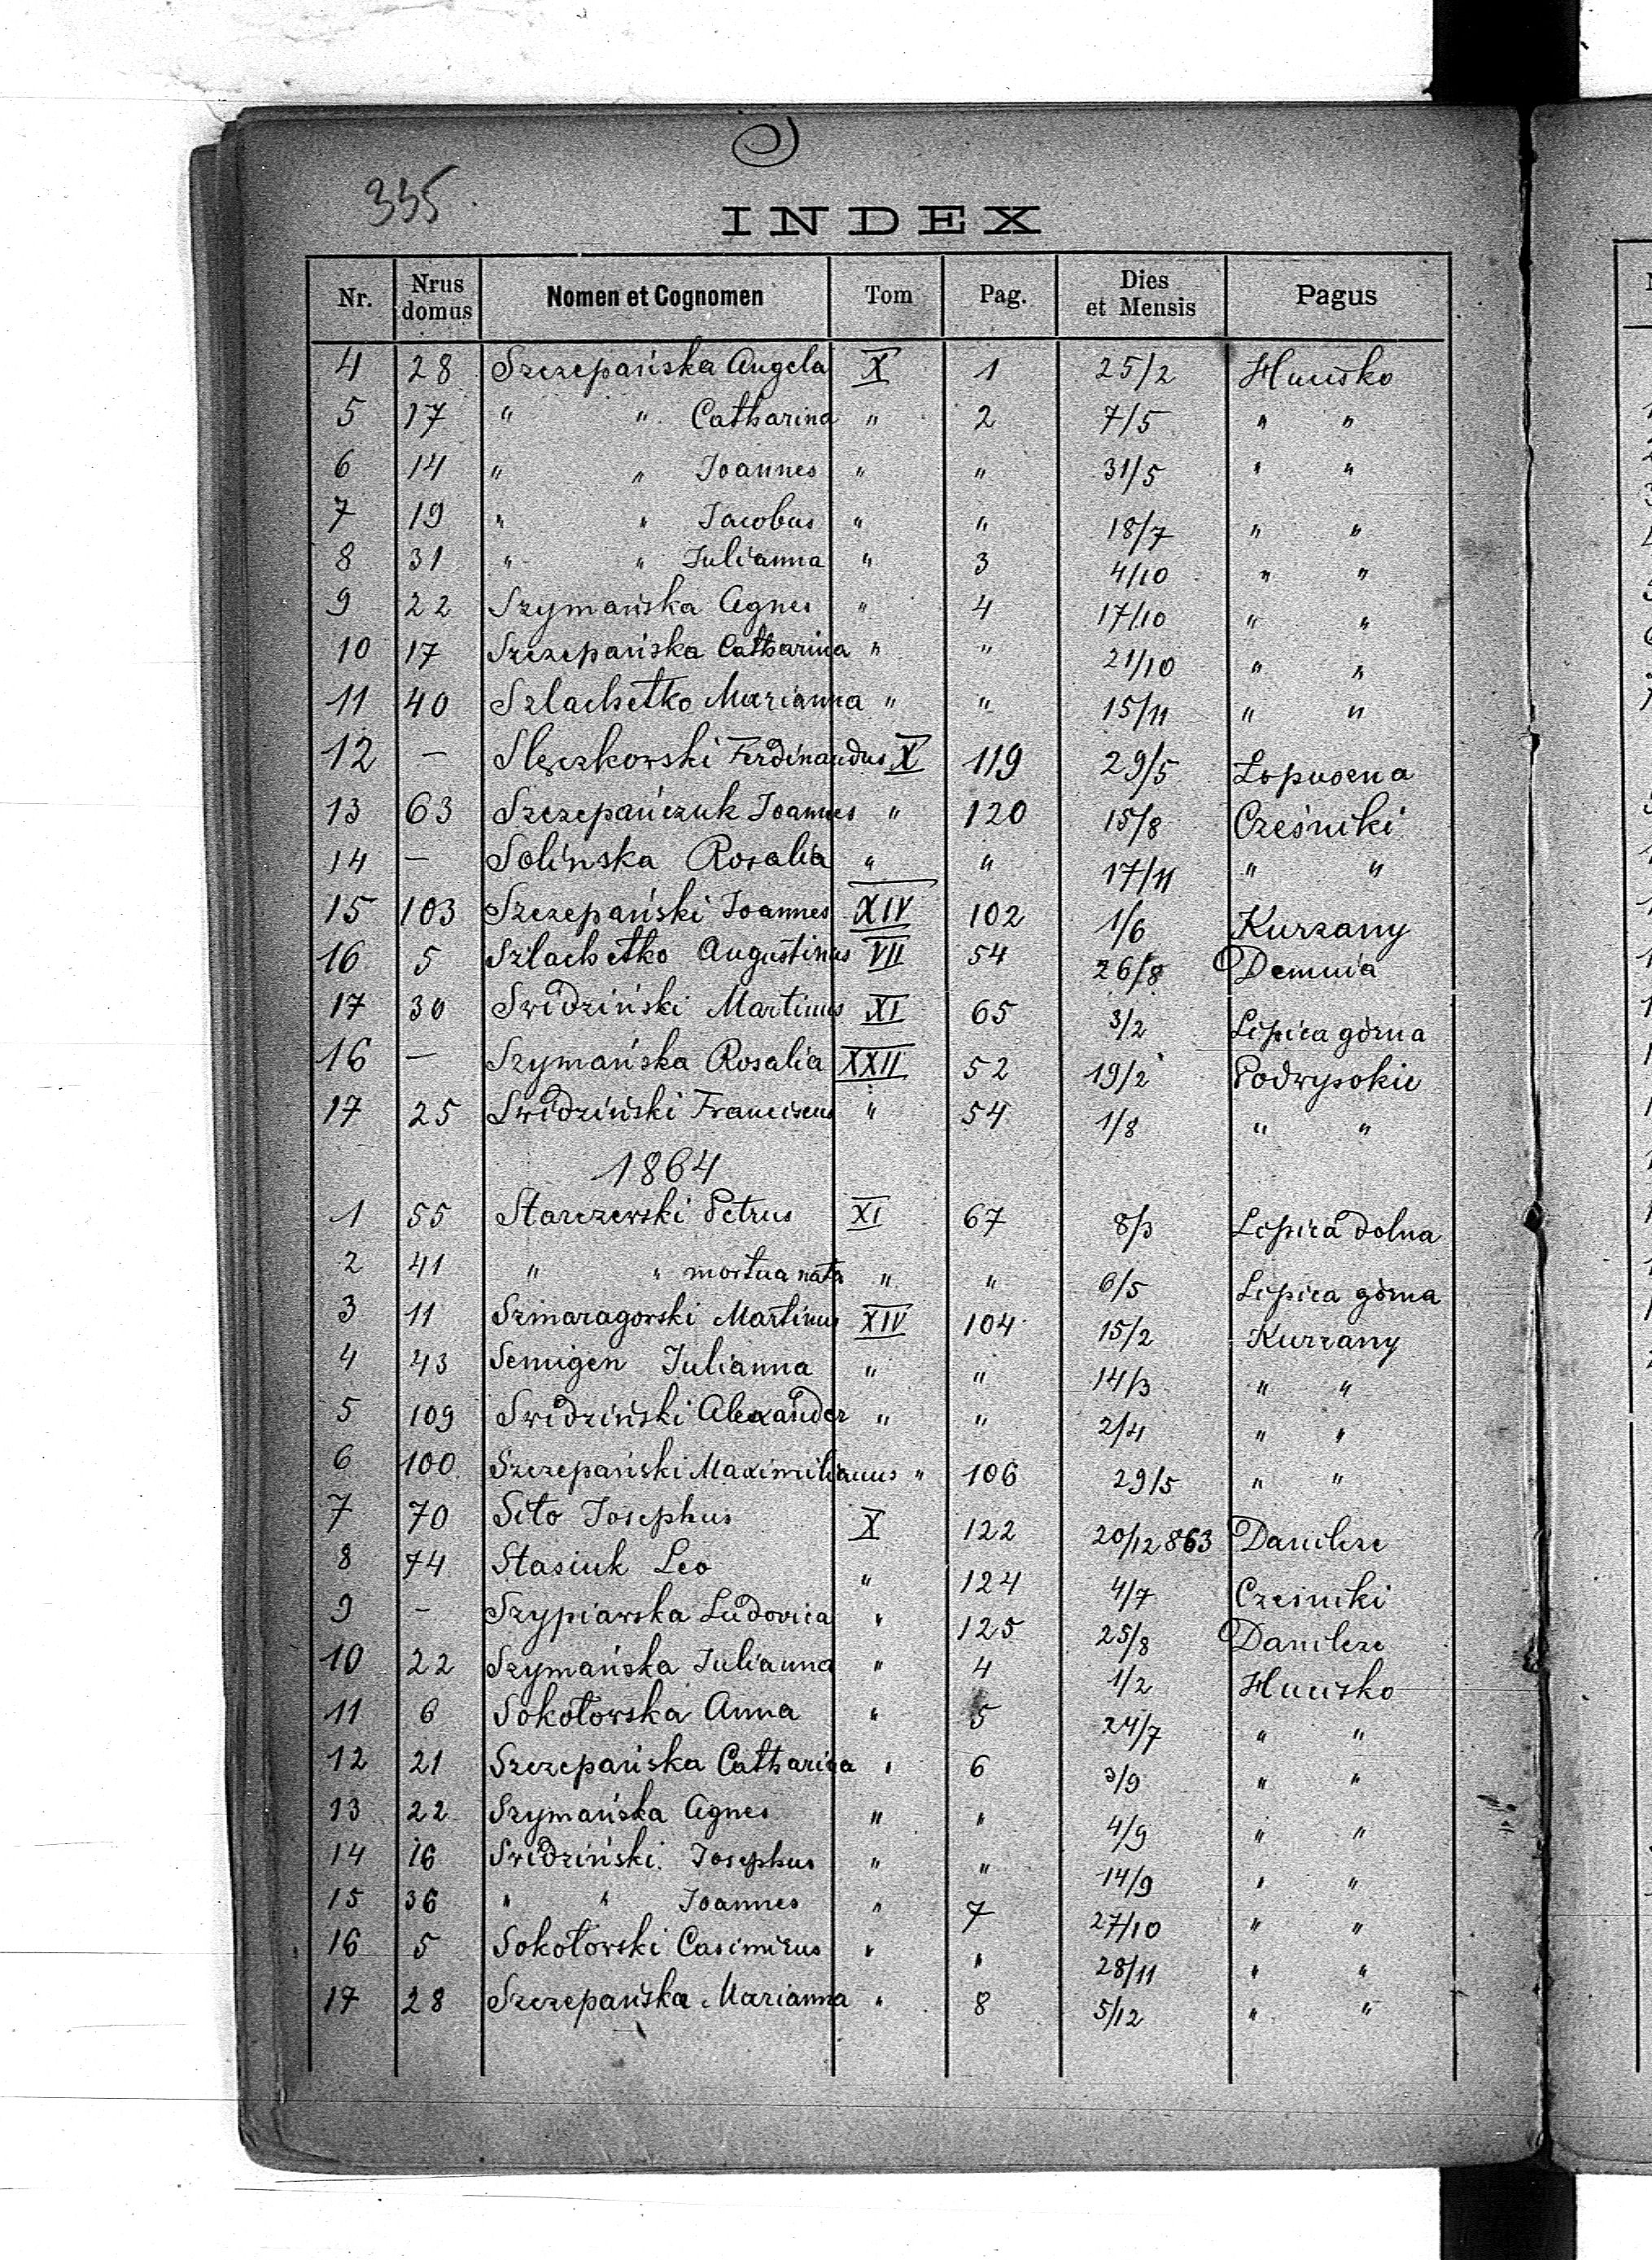 335.
INDEX
Nr. Nrus domus Nomen et Cognomen Tom Pag. Dies et Mensis Pagus
4 28 Szczepańska Angela X 1 25/2 Hucisko
5 17 " " Catharina " 2 7/5 " "
6 14 " " Joannes " " 31/5 " "
7 19 " " Jacobus " " 18/7 " "
8 31 " " Julianna " 3 4/10 " "
9 22 Szymańska Agnes " 4 17/10 " "
10 17 Szczepańska Catharina " " 21/10 " "
11 40 Szlachetko Marianna " " 15/11 " "
12 — Slęczkowski Ferdinandus X 119 29/5 Lopuszna
13 63 Szczepańczuk Joannes " 120 15/8 Cześniki
14 — Solińska Rosalia " " 17/11 " "
15 103 Szczepański Joannes XIV 102 1/6 Kurzany
16 5 Szlachetko Augustinus VII 54 26/8 Demnia
17 30 Swidziński Martinus XI 65 3/2 Lipica górna
16 — Szymańska Rosalia XXII 52 19/2 Podwysokie
17 25 Swidziński Franciscus " 54 1/8 " "
1864
1 55 Starczewski Petrus XI 67 8/3 Lipica dolna
2 41 " " mortua nata " " 6/5 Lipica górna
3 11 Szmaragorski Martinus XIV 104 15/2 Kurzany
4 43 Semigen Julianna " " 14/3 " "
5 109 Swidziński Alexander " " 2/4 " "
6 100 Szczepański Maximilianus " 106 29/5 " "
7 70 Sito Josephus X 122 20/12 863 Danilcze
8 74 Stasiuk Leo " 124 4/7 Czesniki
9 — Szypiawska Ludovica " 125 25/8 Danilcze
10 22 Szymańska Julianna " 4 1/2 Hucisko
11 6 Sokołowska Anna " 5 24/7 " "
12 21 Szczepańska Catharina " 6 3/9 " "
13 22 Szymańska Agnes " " 4/9 " "
14 16 Swidziński Josephus " " 14/9 " "
15 36 " " Joannes " 7 27/10 " "
16 5 Sokołowski Casimirus " " 28/11 " "
17 28 Szczepańska Marianna " 8 5/12 " "